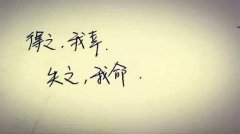 得之，我幸．
失之，我命．